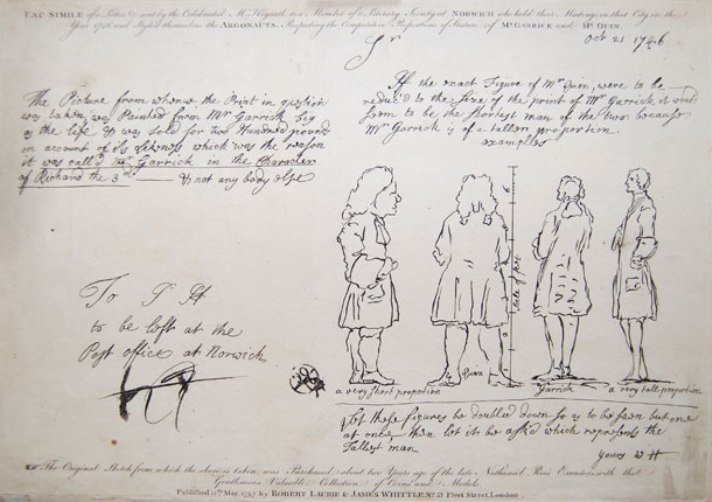 FAC SIMILE of a Letter &c sent by the Celebrated Mr. Hogarth to a Member of a Literary Society at NORWICH who held their Meetings in that City in the
Year 1746 and Styled themselves the ARGONAUTS. Respecting the Comparative Proportions of Stature, of Mr. GARRICK and Mr. QUIN.
Sr
Oct 21 1746
The Picture from whence the Print in question
was taken, was Painted from Mr Garrick big
as the life & was sold for two Hundred pounds
on account of its Likeness which was the reason
it was call'd Mr Garrick in the Character
of Richard the 3d & not any body else
If the exact Figure of Mr Quin, were to be
reduc'd to the size of the print of Mr Garrick it would
seem to be the shortest man of the two because
Mr Garrick is of a taller proportion
examples
6
Scale of feet
Quin
Garrick
a very short proportion
a very tall proportion
To J H
to be left at the
Post office at Norwich
Let these figures be doubled down so as to be seen but one
at once, then let it be ask'd which represents the
Tallest man
yours W H
The Original Sketch from which the above is taken was Purchased about two Years ago of the late Nathaniel Roes Executors, with that
Gentlemans Valuable Collection of Coins and Medals.
Published 12th May, 1797 by ROBERT LAURIE & JAMES WHITTLE, No. 53 Fleet Street, London